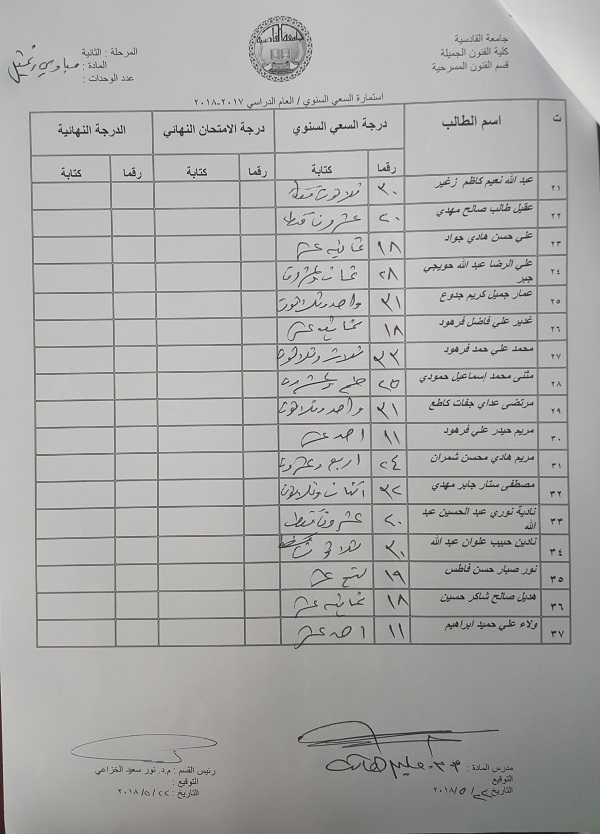 جامعة القادسية
كلية الفنون الجميلة
قسم الفنون المسرحية
المرحلة : الثانية
المادة :
عدد الوحدات :
استمارة السعي السنوي / العام الدراسي ٢٠١٧-٢٠١٨
ت اسم الطالب درجة السعي السنوي درجة الامتحان النهائي الدرجة النهائية
رقما كتابة رقما كتابة رقما كتابة
٢١ عبد الله نعيم كاظم زغير ٣٠ ثلاثون فقط
٢٢ عقيل طالب صالح مهدي ٢٠ عشرون فقط
٢٣ علي حسن هادي جواد ١٨ ثمانية عشر
٢٤ علي الرضا عبد الله حويجي جبر ٢٨ ثمان وعشرون
٢٥ عمار جميل كريم جدوع ٣١ واحد وثلاثون
٢٦ غدير علي فاضل فرهود ١٨ ثمانية عشر
٢٧ محمد علي حمد فرهود ٣٣ ثلاث وثلاثون
٢٨ مثنى محمد إسماعيل حمودي ٢٥ خمس وعشرون
٢٩ مرتضى عداي جفات كاطع ٣١ واحد وثلاثون
٣٠ مريم حيدر علي فرهود ١١ احد عشر
٣١ مريم هادي محسن شمران ٢٤ اربع وعشرون
٣٢ مصطفى ستار جابر مهدي ٣٢ اثنان وثلاثون
٣٣ نادية نوري عبد الحسين عبد الله ٢٠ عشرون فقط
٣٤ نادين حبيب علوان عبد الله ٣٠ ثلاثون فقط
٣٥ نور صبار حسن فاطس ١٩ تسع عشر
٣٦ هديل صالح شاكر حسين ١٨ ثمانية عشر
٣٧ ولاء علي حميد ابراهيم ١١ احد عشر
مدرس المادة : م.م.
التوقيع
التاريخ ٢٠١٨/٥/٢٢
رئيس القسم : م.د. نور سعيد الخزاعي
التوقيع :
التاريخ : ٢٠١٨/٥/٢٢